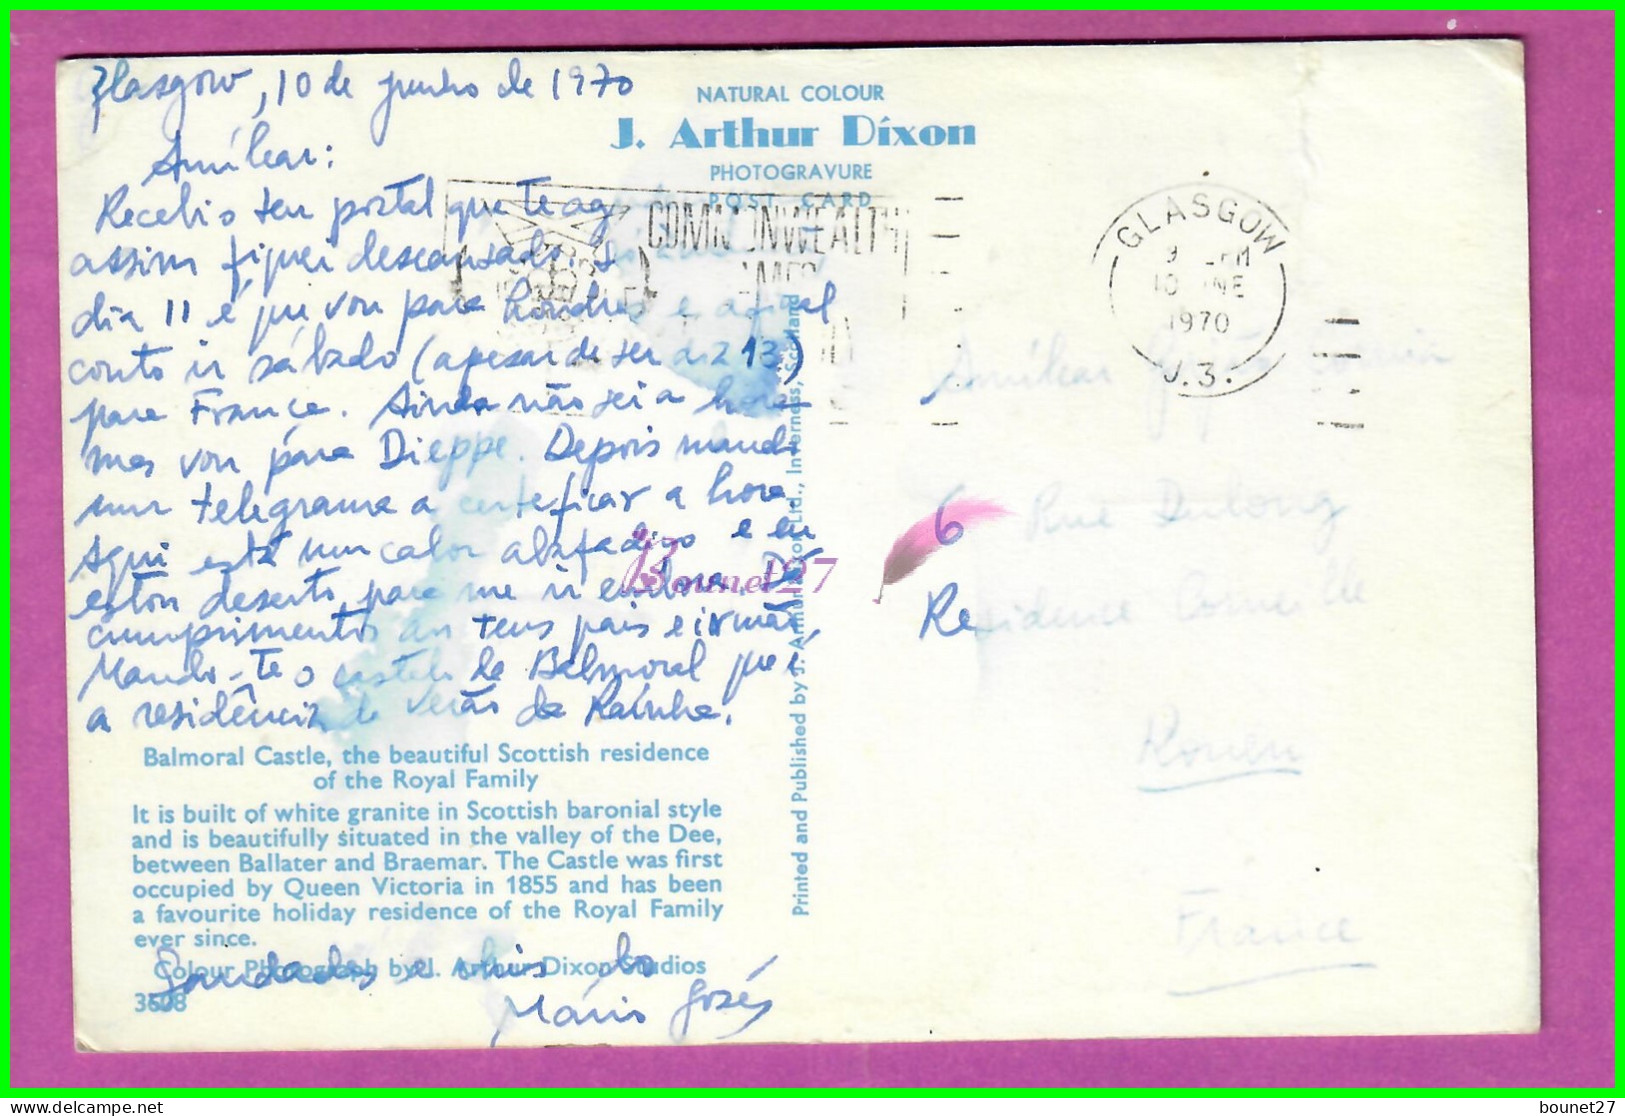 Glasgow, 10 de junho de 1970
Amílcar:
Recebi o teu postal que te ag
assim fiquei descansado.
dia 11 é que vou para Londres e afinal
conto ir sábado (apesar de ser dia 13)
para France. Ainda não sei a hora
mas vou para Dieppe. Depois mando
um telegrama a certeficar a hora.
Aqui está um calor abafadiço e eu
estou deserto para me ir embora. Dá
cumprimentos aos teus pais e irmão,
Mando-te o castelo de Balmoral que é
a residência de Verão da Rainha.
Balmoral Castle, the beautiful Scottish residence
of the Royal Family
It is built of white granite in Scottish baronial style
and is beautifully situated in the valley of the Dee,
between Ballater and Braemar. The Castle was first
occupied by Queen Victoria in 1855 and has been
a favourite holiday residence of the Royal Family
ever since.
Colour Photograph by J. Arthur Dixon Studios
Saudades e do
3608
Mário José
NATURAL COLOUR
J. Arthur Dixon
PHOTOGRAVURE
POST CARD
COMMONWEALTH
Printed and Published by J. Arthur Dixon Ltd., Inverness, Scotland
GLASGOW
9 PM
10 NE
1970
J.3.
Amílcar
6 Rue Dulong
Residence Corneille
Rouen
France
Bounet27
bounet27
delcampe.net